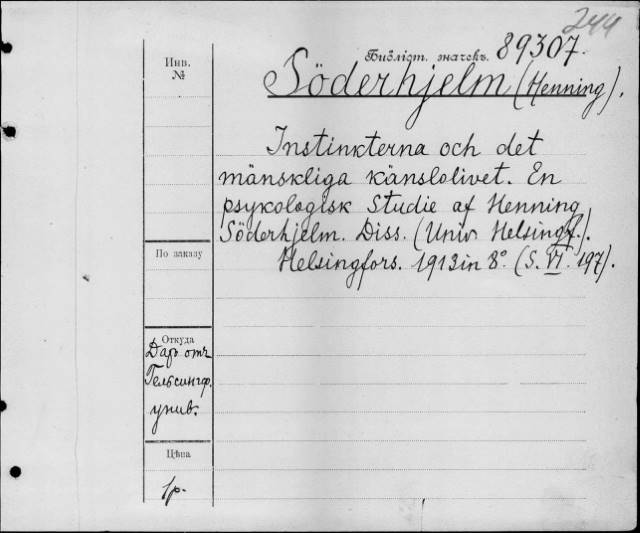 244
Библіот. значекъ. 89307.
Инв.
№
Söderhjelm (Henning).
Instinkterna och det
mänskliga känslolivet. En
psykologisk Studie af Henning
Söderhjelm. Diss. (Univ Helsingf.).
Helsingfors. 1913 in 8° (S. VI. 197).
По заказу
Откуда
Даръ отъ
Гельсингф.
унив.
Цѣна
1р.